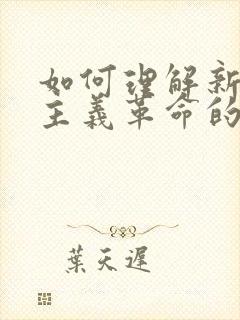 如何理解新
主義革命的
葉天遲